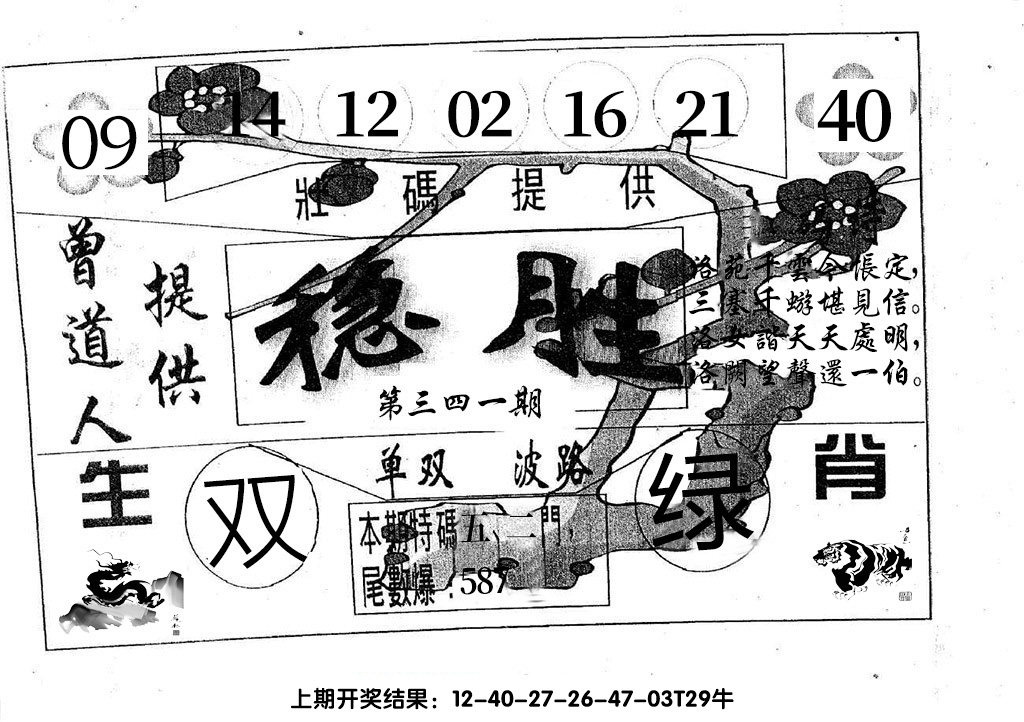 09 14 12 02 16 21 40
壯碼提供
曾道人
提供
稳胜
第三四一期
特
洛苑千雲令悵定,
三塞千蝣堪見信。
洛女諧天天處明,
洛開望聲還一伯。
单双 波路
生肖
双
绿
本期特碼五、二門,
尾數爆:587
上期开奖结果：12-40-27-26-47-03T29牛